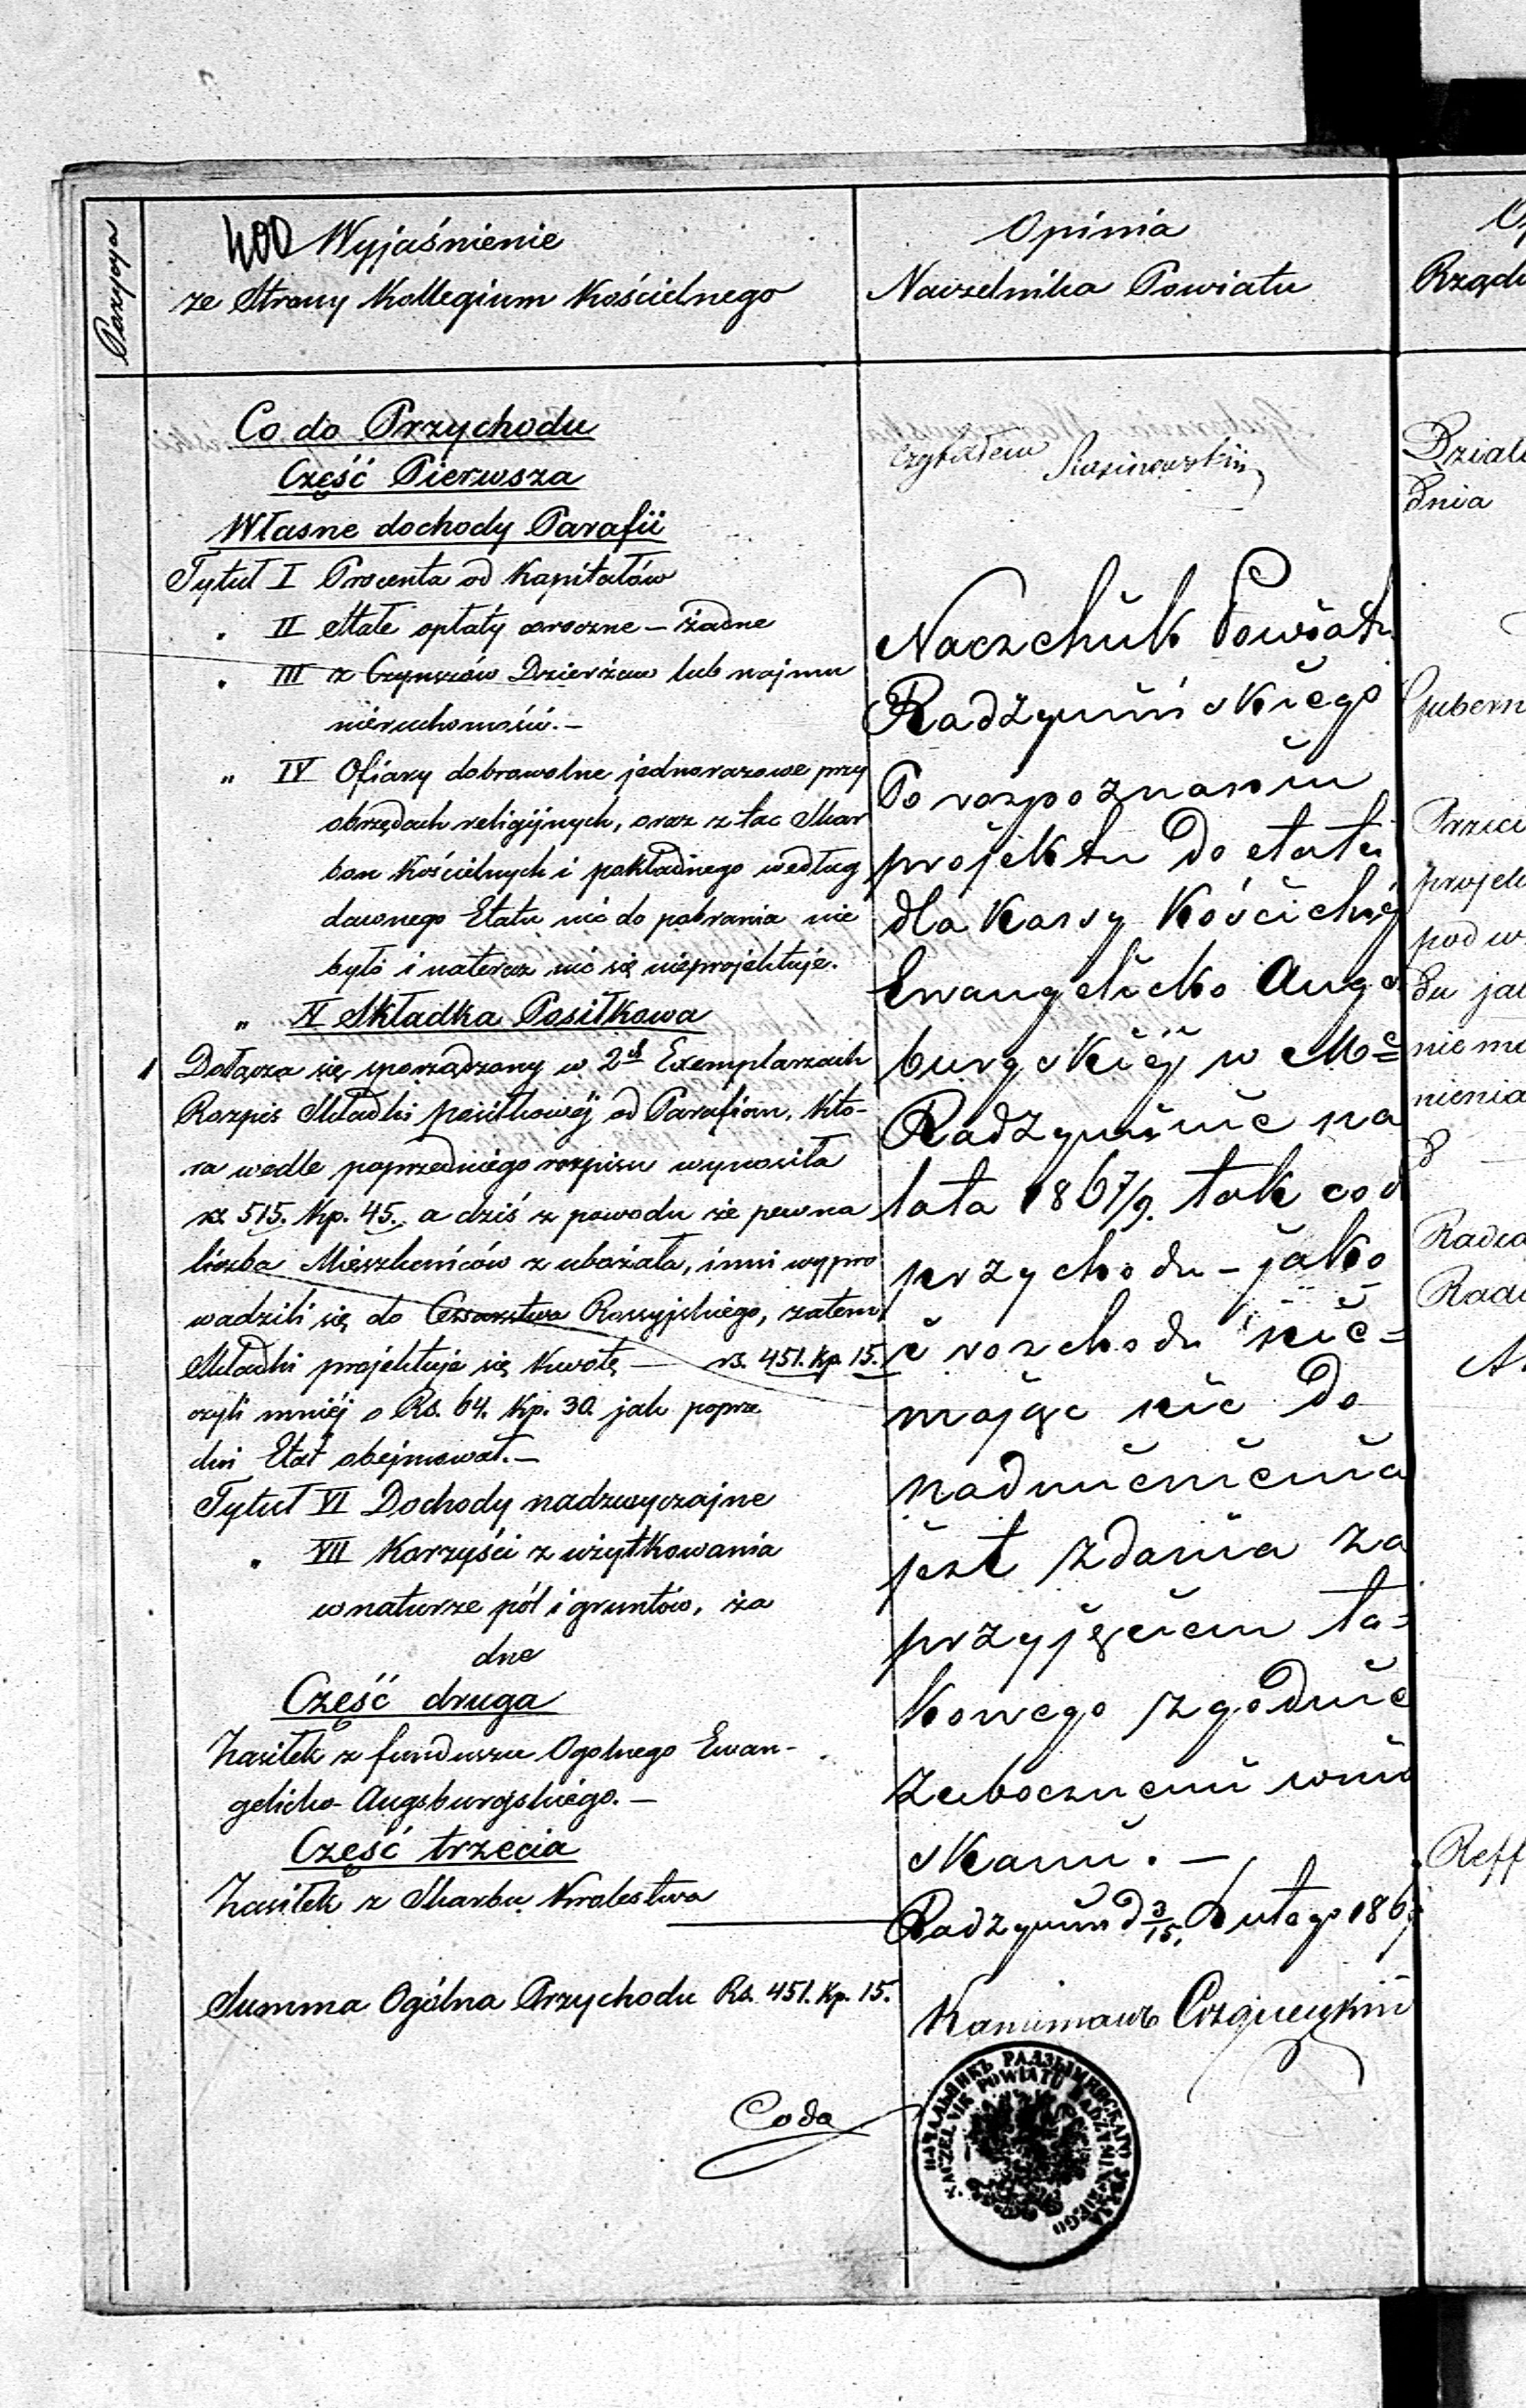 Pozycya
400 Wyjaśnienie
ze Strony Kollegium Kościelnego
Co do Przychodu
Część Pierwsza
Własne dochody Parafii
Tytuł I Procenta od Kapitałów
" II Stałe opłaty coroczne – żadne
" III z Czynszów Dzierżaw lub najmu
nieruchomości. –
" IV Ofiary dobrowolne jednorazowe przy
obrzędach religijnych, oraz z tac Skar
bon Kościelnych i pokładnego według
dawnego Etatu nic do pobrania nie
było i nateraz nic się nieprojektuje.
" V Składka Posiłkowa
1 Dołącza się sporządzony w 2ch Exemplarzach
Rozpis Składki posiłkowéj od Parafian, któ-
ra wedle poprzedniego rozpisu wynosiła
rs. 515. Kp. 45. a dziś z powodu że pewna
liczba Mieszkańców zubożała, inni wypro
wadzili się do Cesarstwa Rossyjskiego, zatem
Składki projektuje się kwotę – rs. 451. Kp. 15.
czyli mniéj o Rs. 64. Kp. 30. jak poprze
dni Etat obejmował. –
Tytuł VI Dochody nadzwyczajne
" VII Korzyści z użytkowania
w naturze pól i gruntów, ża
dne
Część druga
Zasiłek z funduszu Ogolnego Ewan-
gelicko-Augsburgskiego. –
Część trzecia
Zasiłek z Skarbu Krolestwa
Summa Ogólna Przychodu Rs. 451. Kp. 15.
Coda
Opinia
Naczelnika Powiatu
Czytałem
Naczelnik Powiatu
Radzymińskiego
Po rozpoznaniu
projektu do etatu
dla Kassy Kościelnéj
Ewangelicko Augs
burgskiéj w Mce
Radzyminie na
lata 1867/9. tak co d
przychodu – jako
i rozchodu nie=
mając nic do
nadmienienia
jest zdania za
przyjęciem ta=
kowego zgodnie
zubocznemi wnio
skami. –
Radzymin d 3/15. Lutego 1867
НАЧАЛЬНИКЪ РАДЗЫМИНСКАГО УѢЗДА
NACZELNIK POWIATU RADZYMIŃSKIEGO
Rządu
dnia
Gubern
projek
pod w
du jak
nie ma
nienia